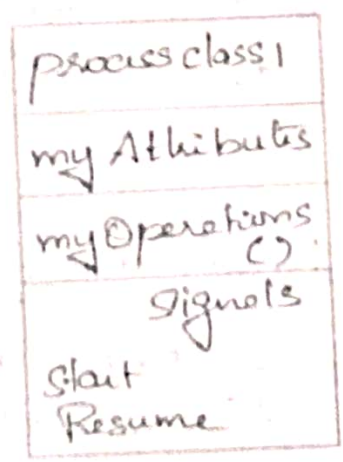 process class 1
my Attributes
my Operations
( )
signals
start
Resume